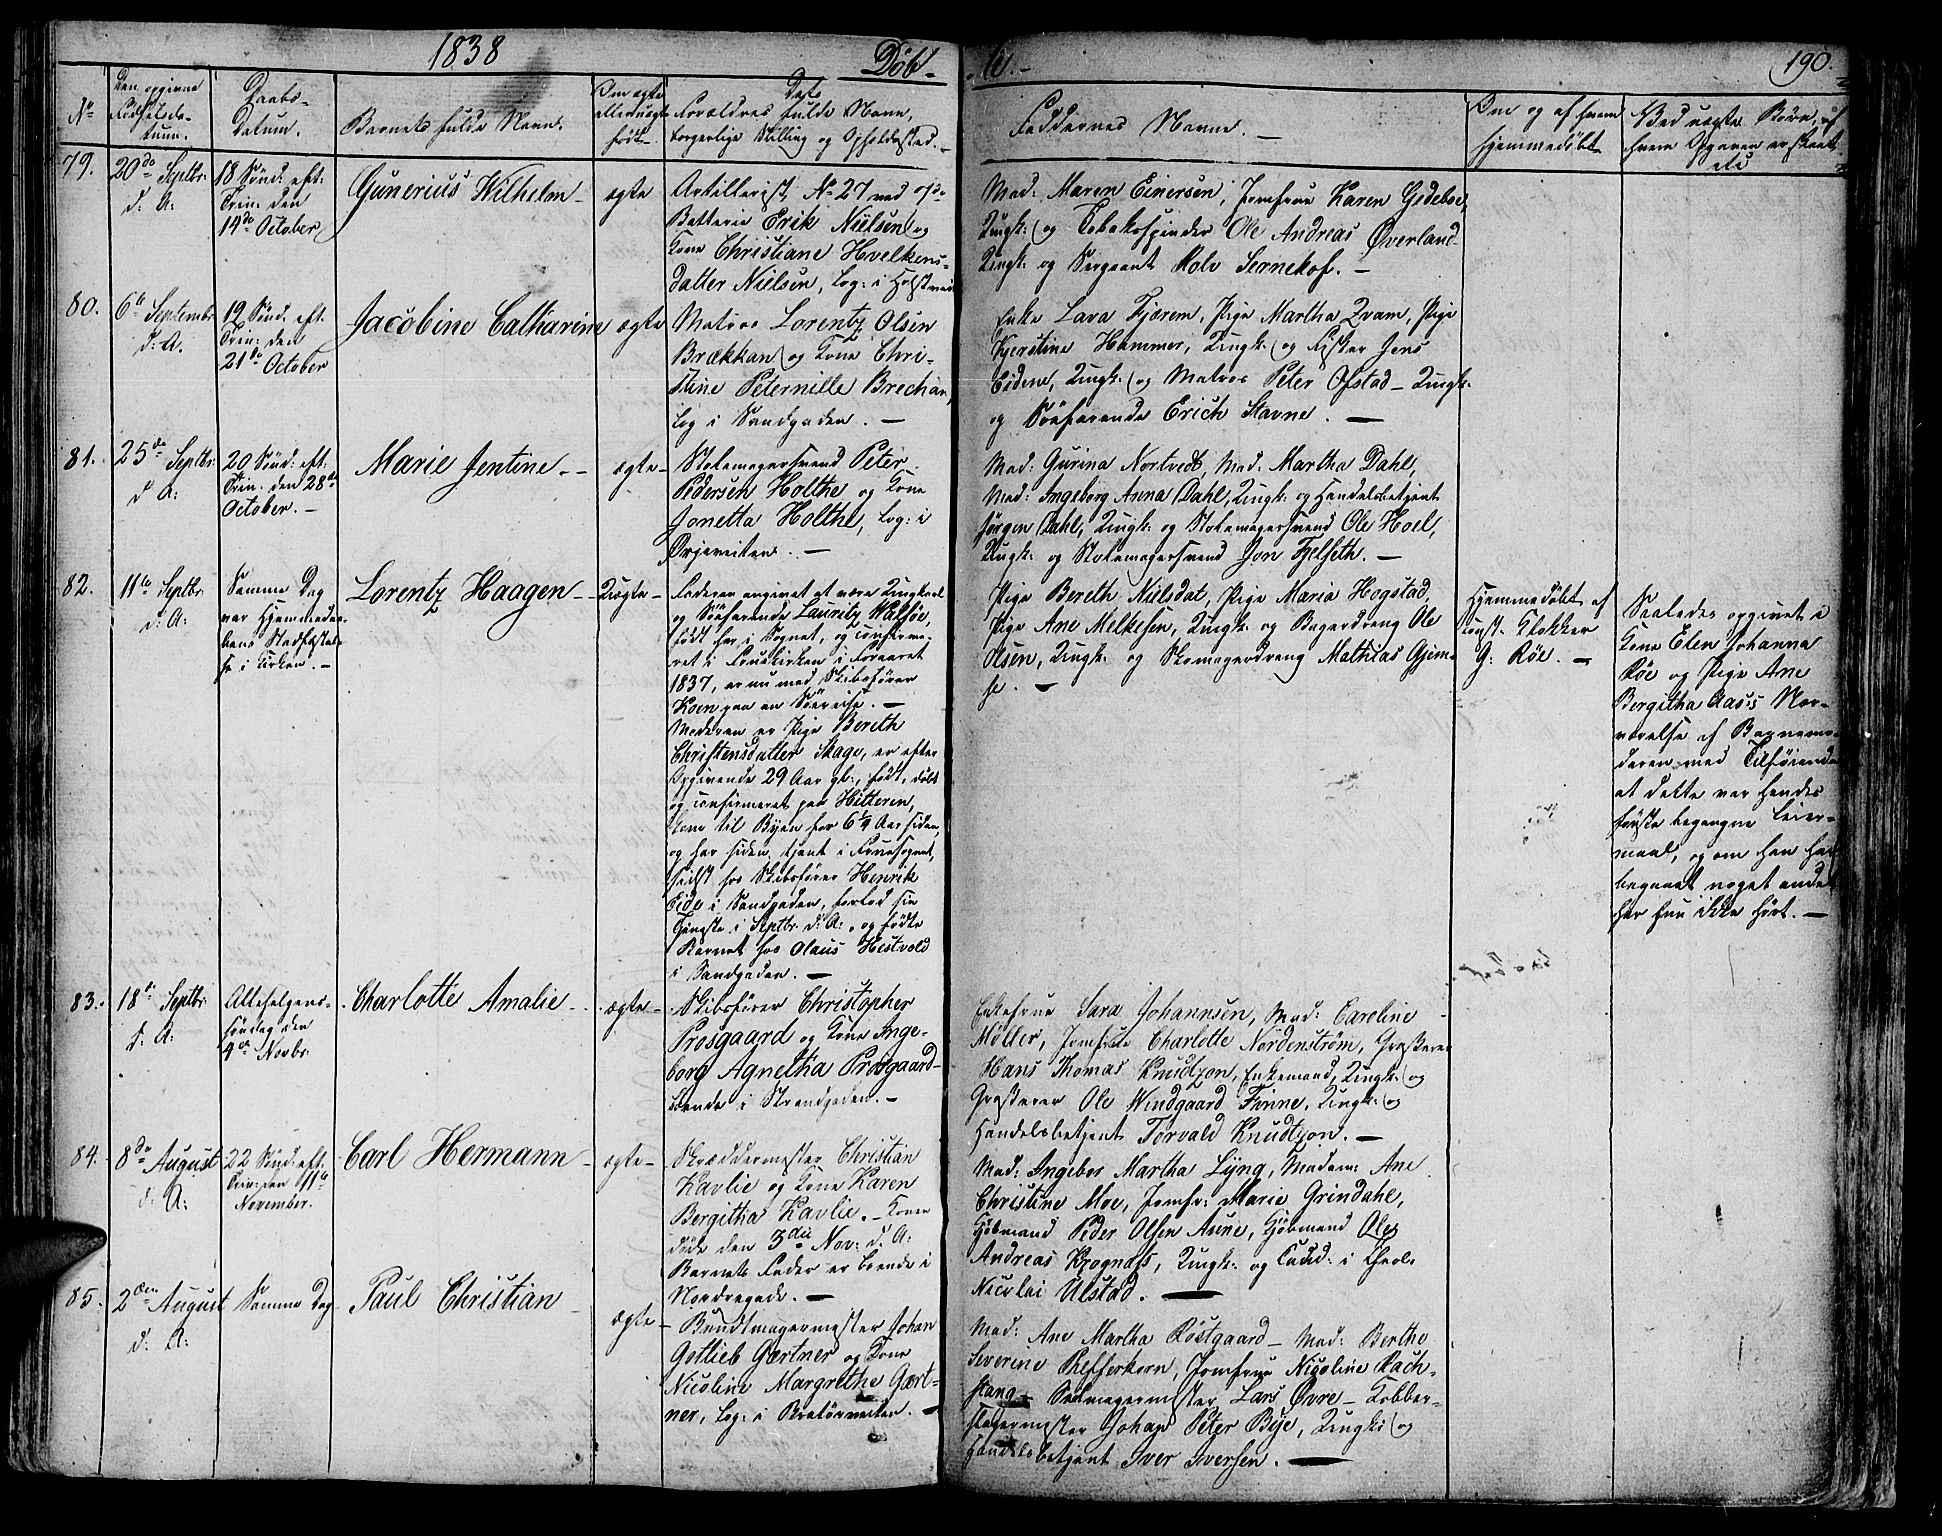 1838
Døb-
te.-
190.
No
Den opgivne
Fødselsda-
tum.
Daabs-
Datum.
Barnets fulde Navn.
Om ægte
eller uægte
født
Dets
Forældres fulde Navn,
borgerlige Stilling og Opholdssted.-
Faddernes Navne. -
Om og af hvem
hjemmedøbt
Ved uægte Børn, af
hvem Opgaven er skeet
79.
20de Septbr.
d: A:
18 Sønd: eft:
Trin: den
14de October
Gunerius Wilhelm-
ægte
Artillerist No 27 ved
Batterie Erik Nielsen og
Kone Christiane Hvelkens-
datter Nielsen, Log: i
Mad: Maren Einersen, Jomfrue Karen Gedeboe,
Ungk: og Tobakspinder Ole Andreas Øverland
Ungk: og Sergeant Rolv Sernekof. -
80.
6te September
d: A.
19 Sønd: eft.
Trin: den
21de October
Jacobine Catharine
ægte
Matros Lorentz Olsen
Brækkan og Kone Chri-
stine Peternille Brechan,
Log i Sandgaden. -
Enke Lava Fjærem, Pige Martha Qvam, Pige
Kjerstine Hammer, Ungk: og Fisker Jens
Eidene, Ungk: og Matros Peter Ofstad - Ungk:
og Søefarende Erich Stavne. -
81.
25de Septbr.
d: A:
20 Sønd: eft:
Trin. den 28de
October. -
Marie Jentine. -
ægte-
Skomagersvend Peter
Pedersen Holthe og Kone
Jonetta Holthe, Log: i
Ørjeveiten. -
Mad: Gurina Nortvedt, Mad: Martha Dahl,
Mad: Ingeborg Anna Dahl, Ungk: og Handelsbetjent
Jørgen Dahl, Ungk: og Skomagersvend Ole Hoel,
Ungk: og Skomagersvend Jon Fjelseth. -
82.
11te Septbr
d: A:
Samme Dag
var Hjemmedaa-
bens Stadfæstel-
se i Kirken. -
Lorentz Haagen -
Uægte-
Faderen angivet at være Ungkarl
og Søefarende Lauritz Walsøe,
født her i Sognet, og confirme-
ret i Fruekirken i Foraaret
1837, er nu med Skibsfører
Koen paa en Søereise. -
Moderen er Pige Bereth
Christensdatter Skage, er efter
Opgivende 29 Aar gl:, født, døbt
og confirmeret paa Hitteren,
kom til Byen for 6¼ Aar siden,
og har siden tjent i Fruesognet,
sidst hos Skibsfører Henrik
Eide i Sandgaden, forlod sin
Tjeneste i Septbr. d: A:, og fødte
Barnet hos Olaus Hestvold
i Sandgaden. -
Pige Bereth Nielsdat, Pige Maria Hogstad,
Pige Ane Melkesen, Ungk: og Bagerdreng Ole
Olsen, Ungk: og Skomagerdreng Mathias Gjem-
se. -
Hjemmedøbt af
const. Klokker
G: Røe. -
Saaledes opgivet i
Kone Elen Johanna
Røe og Pige Ane
Bergitha Aas's Nær-
værelse af Barnemo-
deren med Tilføiende
at dette var hendes
første begangne Leier-
maal, og om han har
begaaet noget andet
har hun ikke hørt. -
83.
18de Septbr:
d: A:
Allehelgens-
søndag den
4de Novbr.
Charlotte Amalie -
ægte-
Skibsfører Christopher
Prosgaard og Kone Inge-
borg Agnetha Prosgaard-
boende i Strandgaden. -
Enkefrue Sara Johannsen, Mad: Caroline
Møller, Jomfrue Charlotte Nordenstrøm, Grosserer
Hans Thomas Knudtzon, Enkemand, Ungk: og
Grosserer Ole Windgaard Finne, Ungk: og
Handelsbetjent Torvald Knudtzon. -
84.
8de August
d: A:
22 Sønd: eft.
Trin: den 11te
November.
Carl Hermann -
ægte-
Skræddermester Christian
Kavlie og Kone Karen
Bergitha Kavlie. - Konen
døde den 3die Nov: d. A:
Barnets Fader er boende i
Nordregade. -
Mad: Ingebor Martha Lyng, Madm: Ane
Christine Moe, Jomfr: Marie Grindahl,
Kjøbmand Peder Olsen Aune, Kjøbmand Ole
Andreas Krognæss, Ungk: og Cand: i Theol.
Nicolai Ulstad. -
85.
2den August
d: A:
Samme Dag
Paul Christian -
ægte-
Bundtmagermester Johan
Gotlieb Gærtner og Kone
Nicoline Margrethe Gært-
ner, Log: i Bratørveiten. -
Mad: Ane Martha Røstgaard - Mad: Berthe
Severine Pfefferkorn, Jomfrue Nicoline Bach-
stang - Sadmagermester Lars Øvre - Kobber-
slagermester Johan Peter Bye, Ungk: og
Handelsbetjent Iver Iversen. -